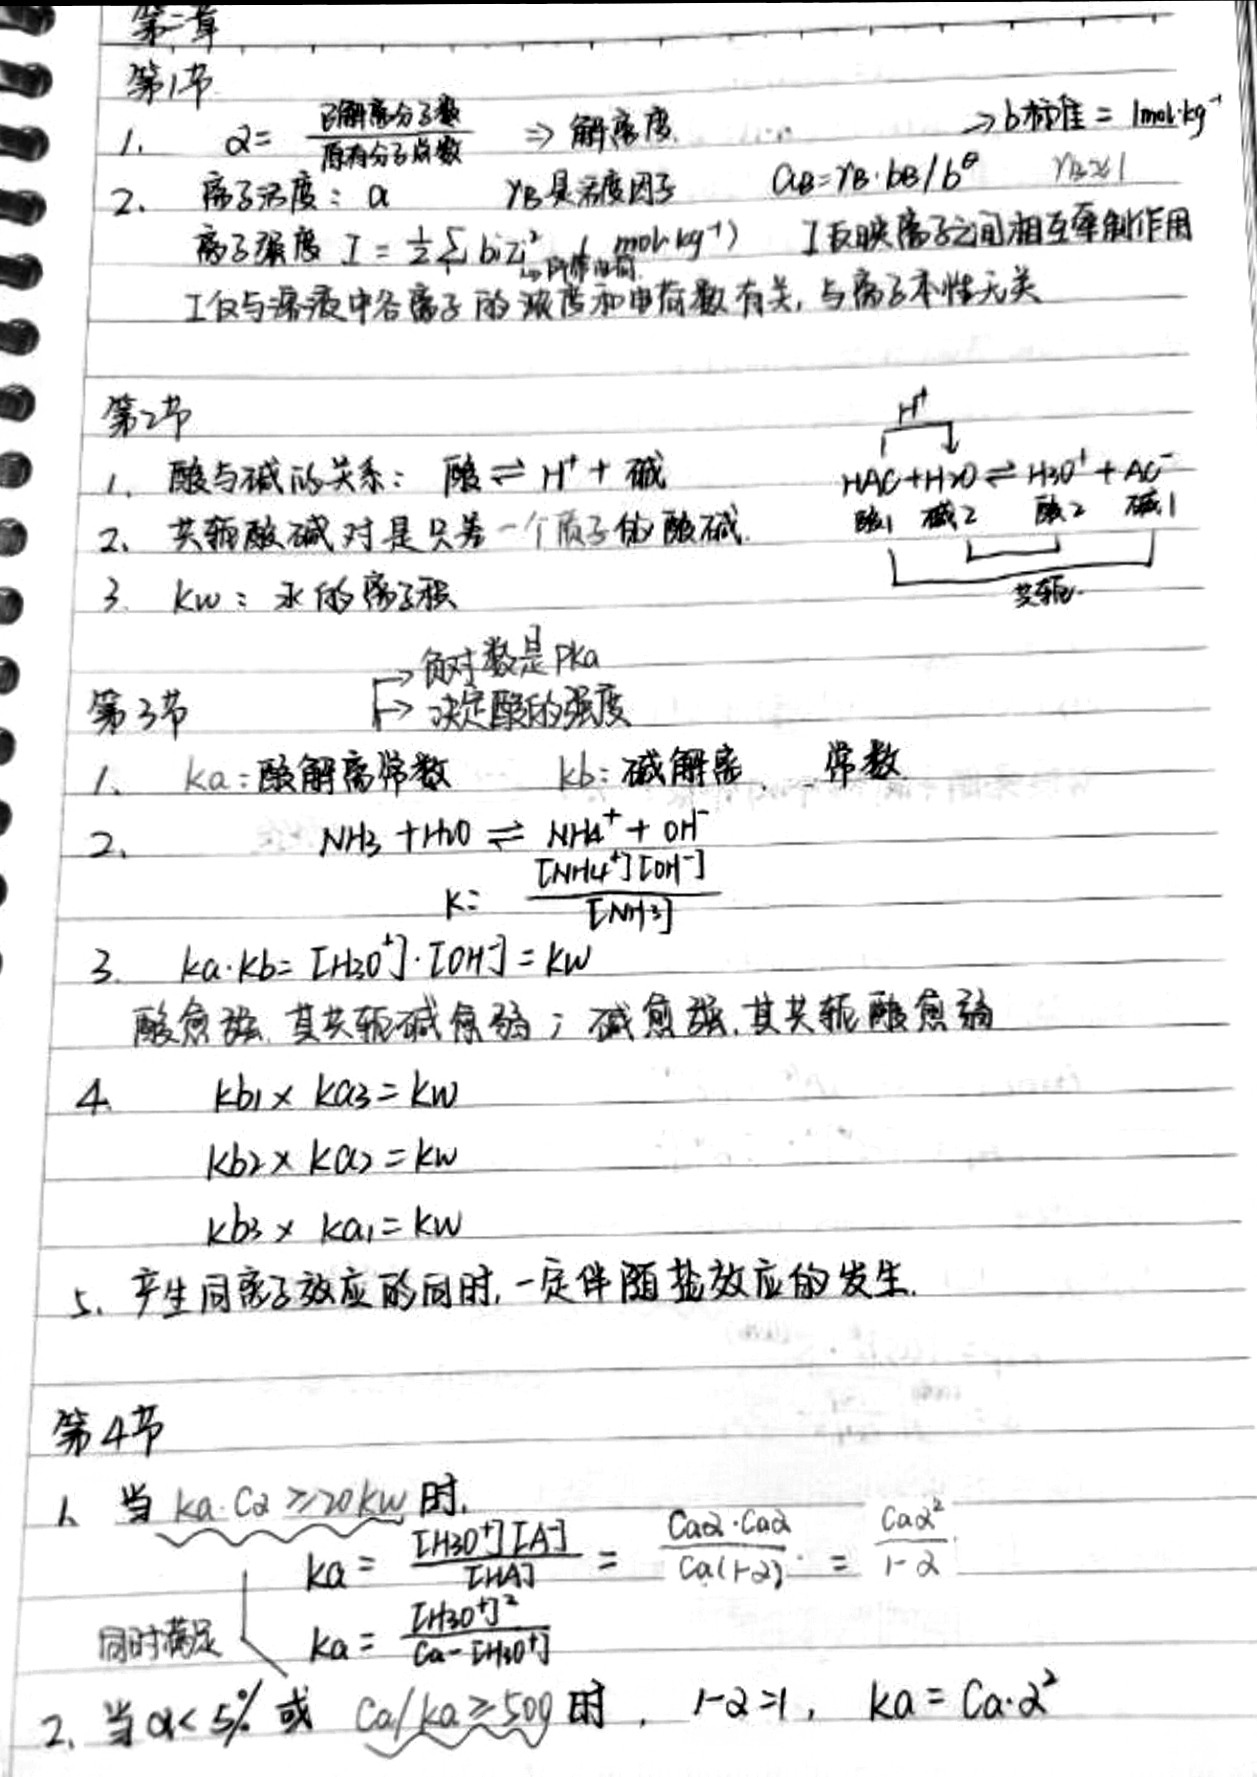 第二章
第1节
1. α = 已解离分子数 / 原有分子总数 ⇒ 解离度. → b标准 = 1mol·kg⁻¹
2. 离子活度：a γB是活度因子 aB=γB·bB/b^θ γB≈1
离子强度 I = ½ Σ biZi² ( mol·kg⁻¹) I反映离子之间相互牵制作用
i → 所带电荷.
I仅与溶液中各离子的浓度和电荷数有关, 与离子本性无关
第2节
H⁺
1. 酸与碱的关系： 酸 ⇌ H⁺ + 碱 HAC+H2O ⇌ H3O⁺ + AC⁻
酸1 碱2 酸2 碱1
2、 共轭酸碱对是只差一个质子的酸碱.
3. kw： 水的离子积 共轭.
→ 负对数是Pka
第3节 → 决定酸的强度
1、 ka：酸解离常数 kb：碱解离 常数
2、 NH3 + H2O ⇌ NH4⁺ + OH⁻
K= [NH4⁺][OH⁻] / [NH3]
3. ka·kb= [H3O⁺]·[OH⁻] = kw
酸愈强, 其共轭碱愈弱；碱愈强, 其共轭酸愈弱
4. kb1 × ka3 = kw
kb2 × ka2 = kw
kb3 × ka1 = kw
5. 产生同离子效应的同时, 一定伴随盐效应的发生.
第4节
1. 当 ka·Ca ≥ 20kw 时,
ka = [H3O⁺][A⁻] / [HA] = Caα·Caα / Ca(1-α) = Caα² / 1-α
同时满足 ka = [H3O⁺]² / Ca-[H3O⁺]
2. 当α< 5% 或 Ca/ka ≥ 500 时, 1-α=1, ka = Ca·α²